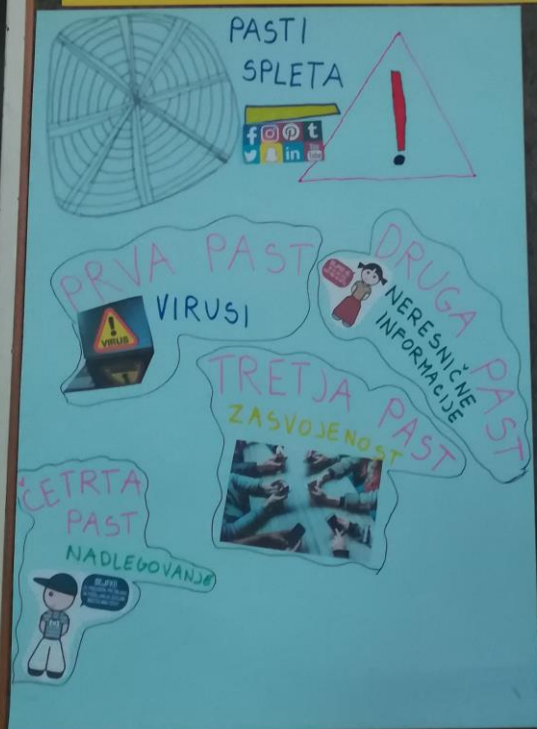 PASTI
SPLETA
PRVA PAST
VIRUSI
VIRUS
DRUGA PAST
NERESNIČNE
INFORMACIJE
TRETJA PAST
ZASVOJENOST
ČETRTA
PAST
NADLEGOVANJE